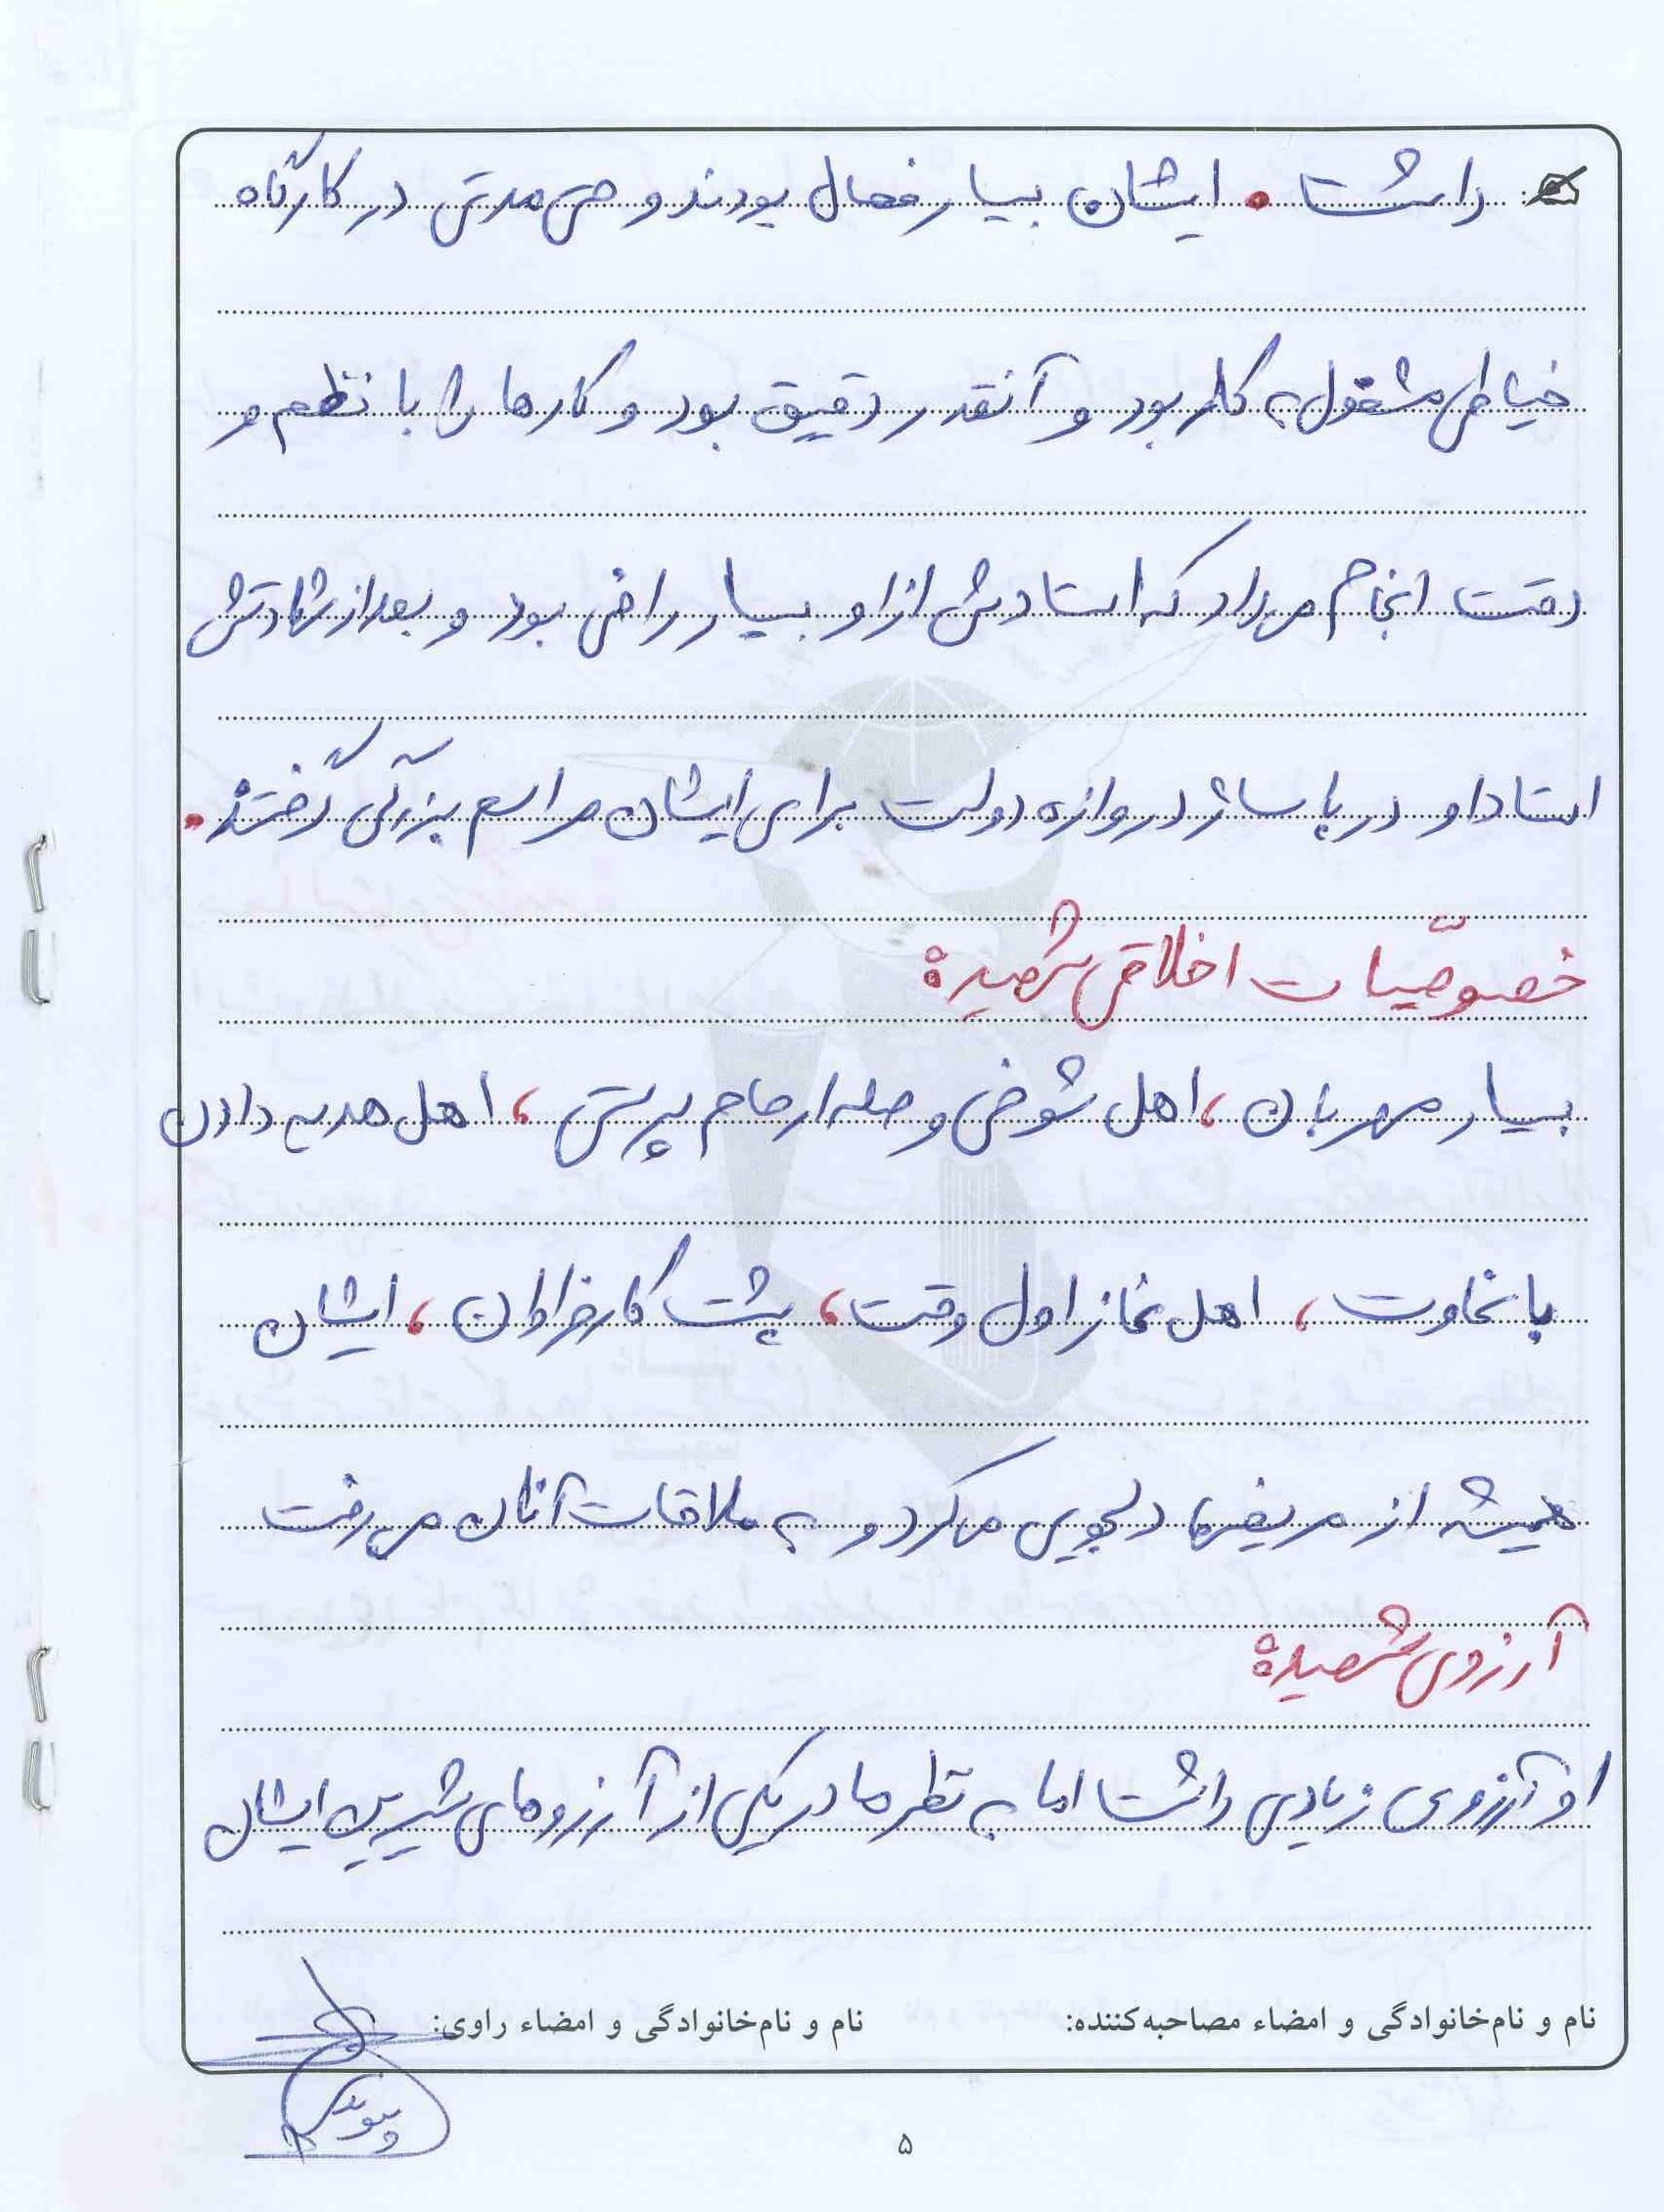 داشت. ایشان بسیار فعال بودند و حتی مدتی در کارگاه
خیاطی مشغول به کار بود و آنقدر دقیق بود و کارها را با نظم و
دقت انجام می‌داد که استادش از او بسیار راضی بود و بعد از شهادتش
استاد او در پاساژ دروازه دولت برای ایشان مراسم بزرگی گرفتند.
خصوصیّات اخلاقی شهید:
بسیار مهربان، اهل شوخی و صله ارحام پرستی، اهل هدیه دادن
با سخاوت، اهل نماز اول وقت، پشت کار فراوان، ایشان
همیشه از مریض‌ها دلجویی می‌کرد و به ملاقات آنان می‌رفت
آرزوی شهید:
او آرزوی زیادی داشت اما به نظر مادر یکی از آرزوهای شیرین ایشان
نام و نام‌خانوادگی و امضاء مصاحبه‌کننده:
نام و نام‌خانوادگی و امضاء راوی:
۵